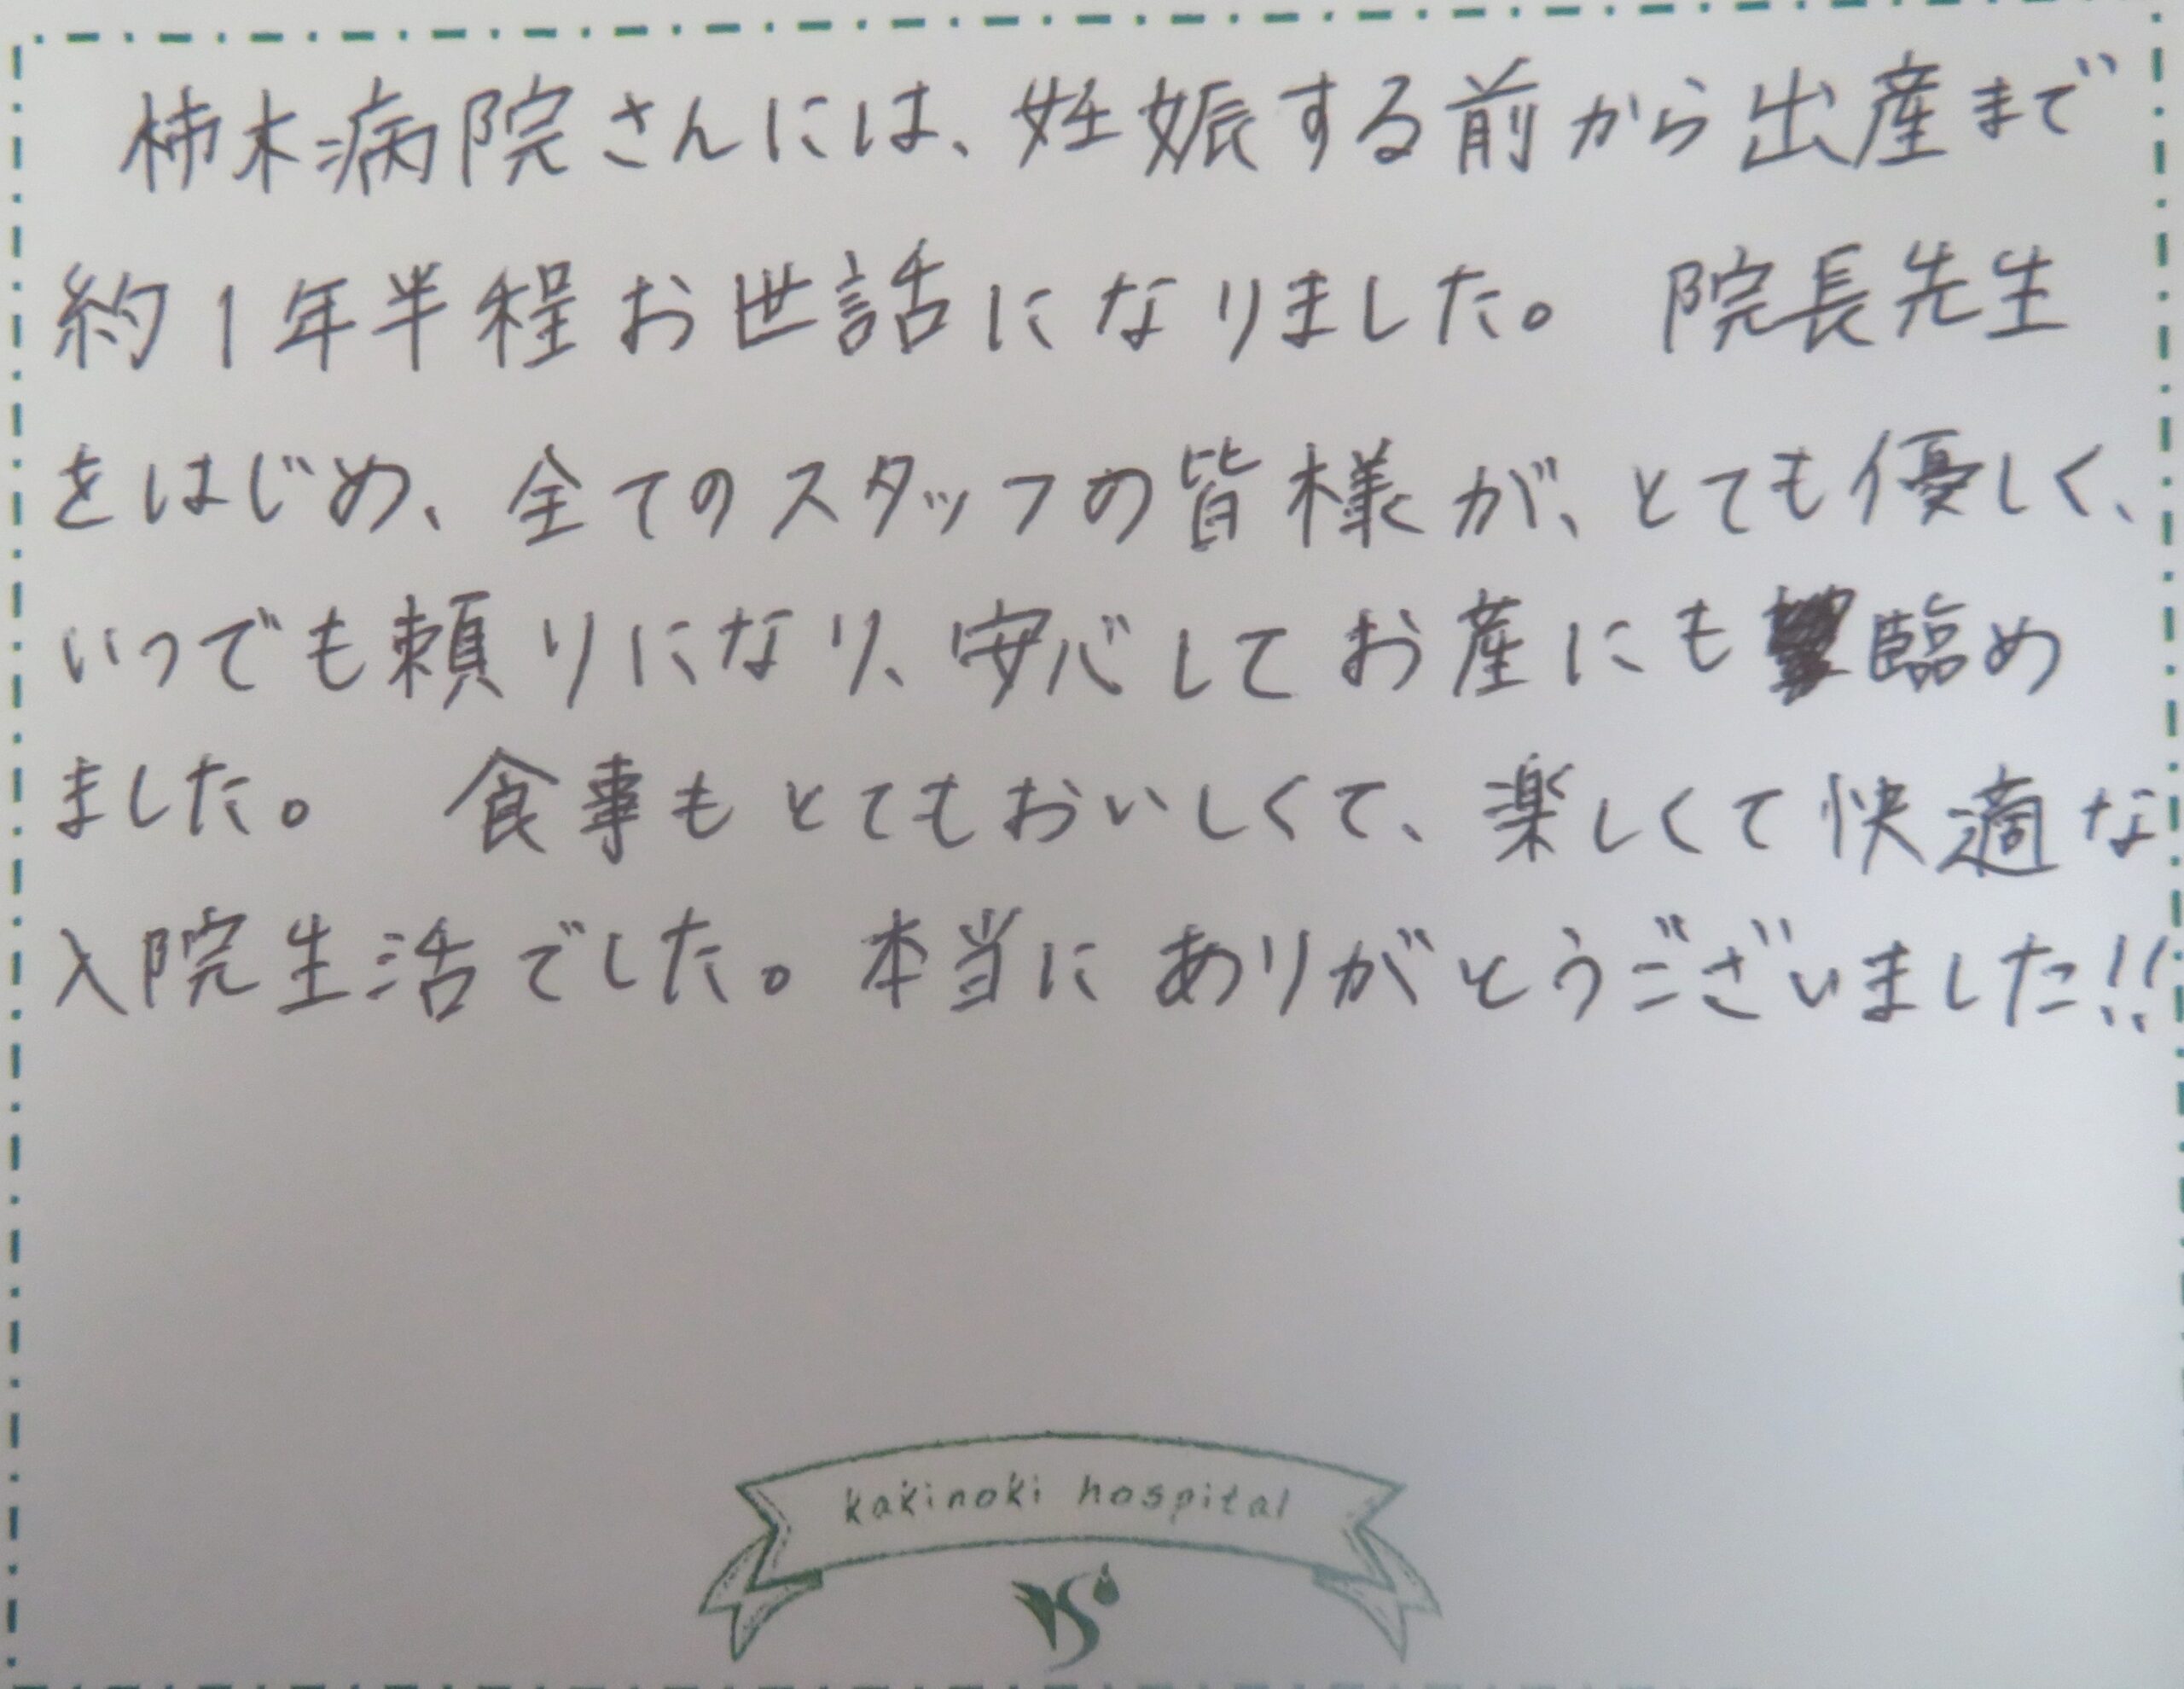 柿木病院さんには、妊娠する前から出産まで
約1年半程お世話になりました。 院長先生
をはじめ、全てのスタッフの皆様が、とても優しく、
いつでも頼りになり、安心してお産にも臨め
ました。 食事もとてもおいしくて、楽しくて快適な
入院生活でした。本当にありがとうございました!!
kakinoki hospital